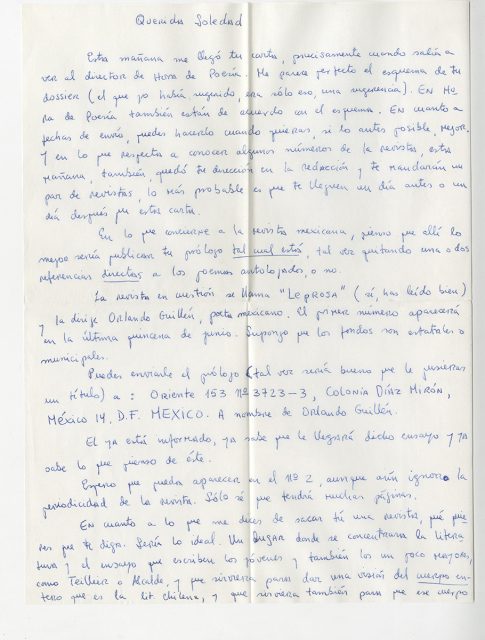 Querida Soledad
Esta mañana me llegó tu carta, precisamente cuando salía a
ver al director de Hora de Poesía. Me parece perfecto el esquema de tu
dossier (el que yo había sugerido, era sólo eso, una sugerencia). EN Ho
ra de Poesía también están de acuerdo con el esquema. EN cuanto a
fechas de envío, puedes hacerlo cuando quieras, si lo antes posible, mejor.
Y en lo que respecta a conocer algunos números de la revista, esta
mañana, también, quedó tu dirección en la redacción y te mandarán un
par de revistas, lo más probable es que te lleguen un día antes o un
día después que esta carta.
En lo que concierne a la revista mexicana, pienso que allí lo
mejor sería publicar tu prólogo tal cual está, tal vez quitando una o dos
referencias directas a los poemas antologados, o no.
La revista en cuestión se llama "LEPROSA" (sí, has leído bien)
y la dirige Orlando Guillén, poeta mexicano. El primer número aparecerá
en la última quincena de junio. Supongo que los fondos son estatales o
municipales.
Puedes enviarle el prólogo (tal vez sería bueno que le pusieras
un título) a: ORIENTE 153 Nº 3723-3, COLONIA DÍAZ MIRÓN,
MÉXICO 14, D.F. MEXICO. A nombre de Orlando Guillén.
El ya está informado, ya sabe que le llegará dicho ensayo y ya
sabe lo que pienso de éste.
Espero que pueda aparecer en el Nº 2, aunque aún ignoro la
periodicidad de la revista. Sólo sé que tendrá muchas páginas.
EN cuanto a lo que me dices de sacar tú una revista, qué quie
res que te diga. Sería lo ideal. Un LUGAR donde se concentrara la litera
tura y el ensayo que escriben los jóvenes y también los un poco mayores,
como Teillier o Alcalde, y que sirviera para dar una visión del cuerpo en-
tero que es la lit. chilena, y que sirviera también para que ese cuerpo